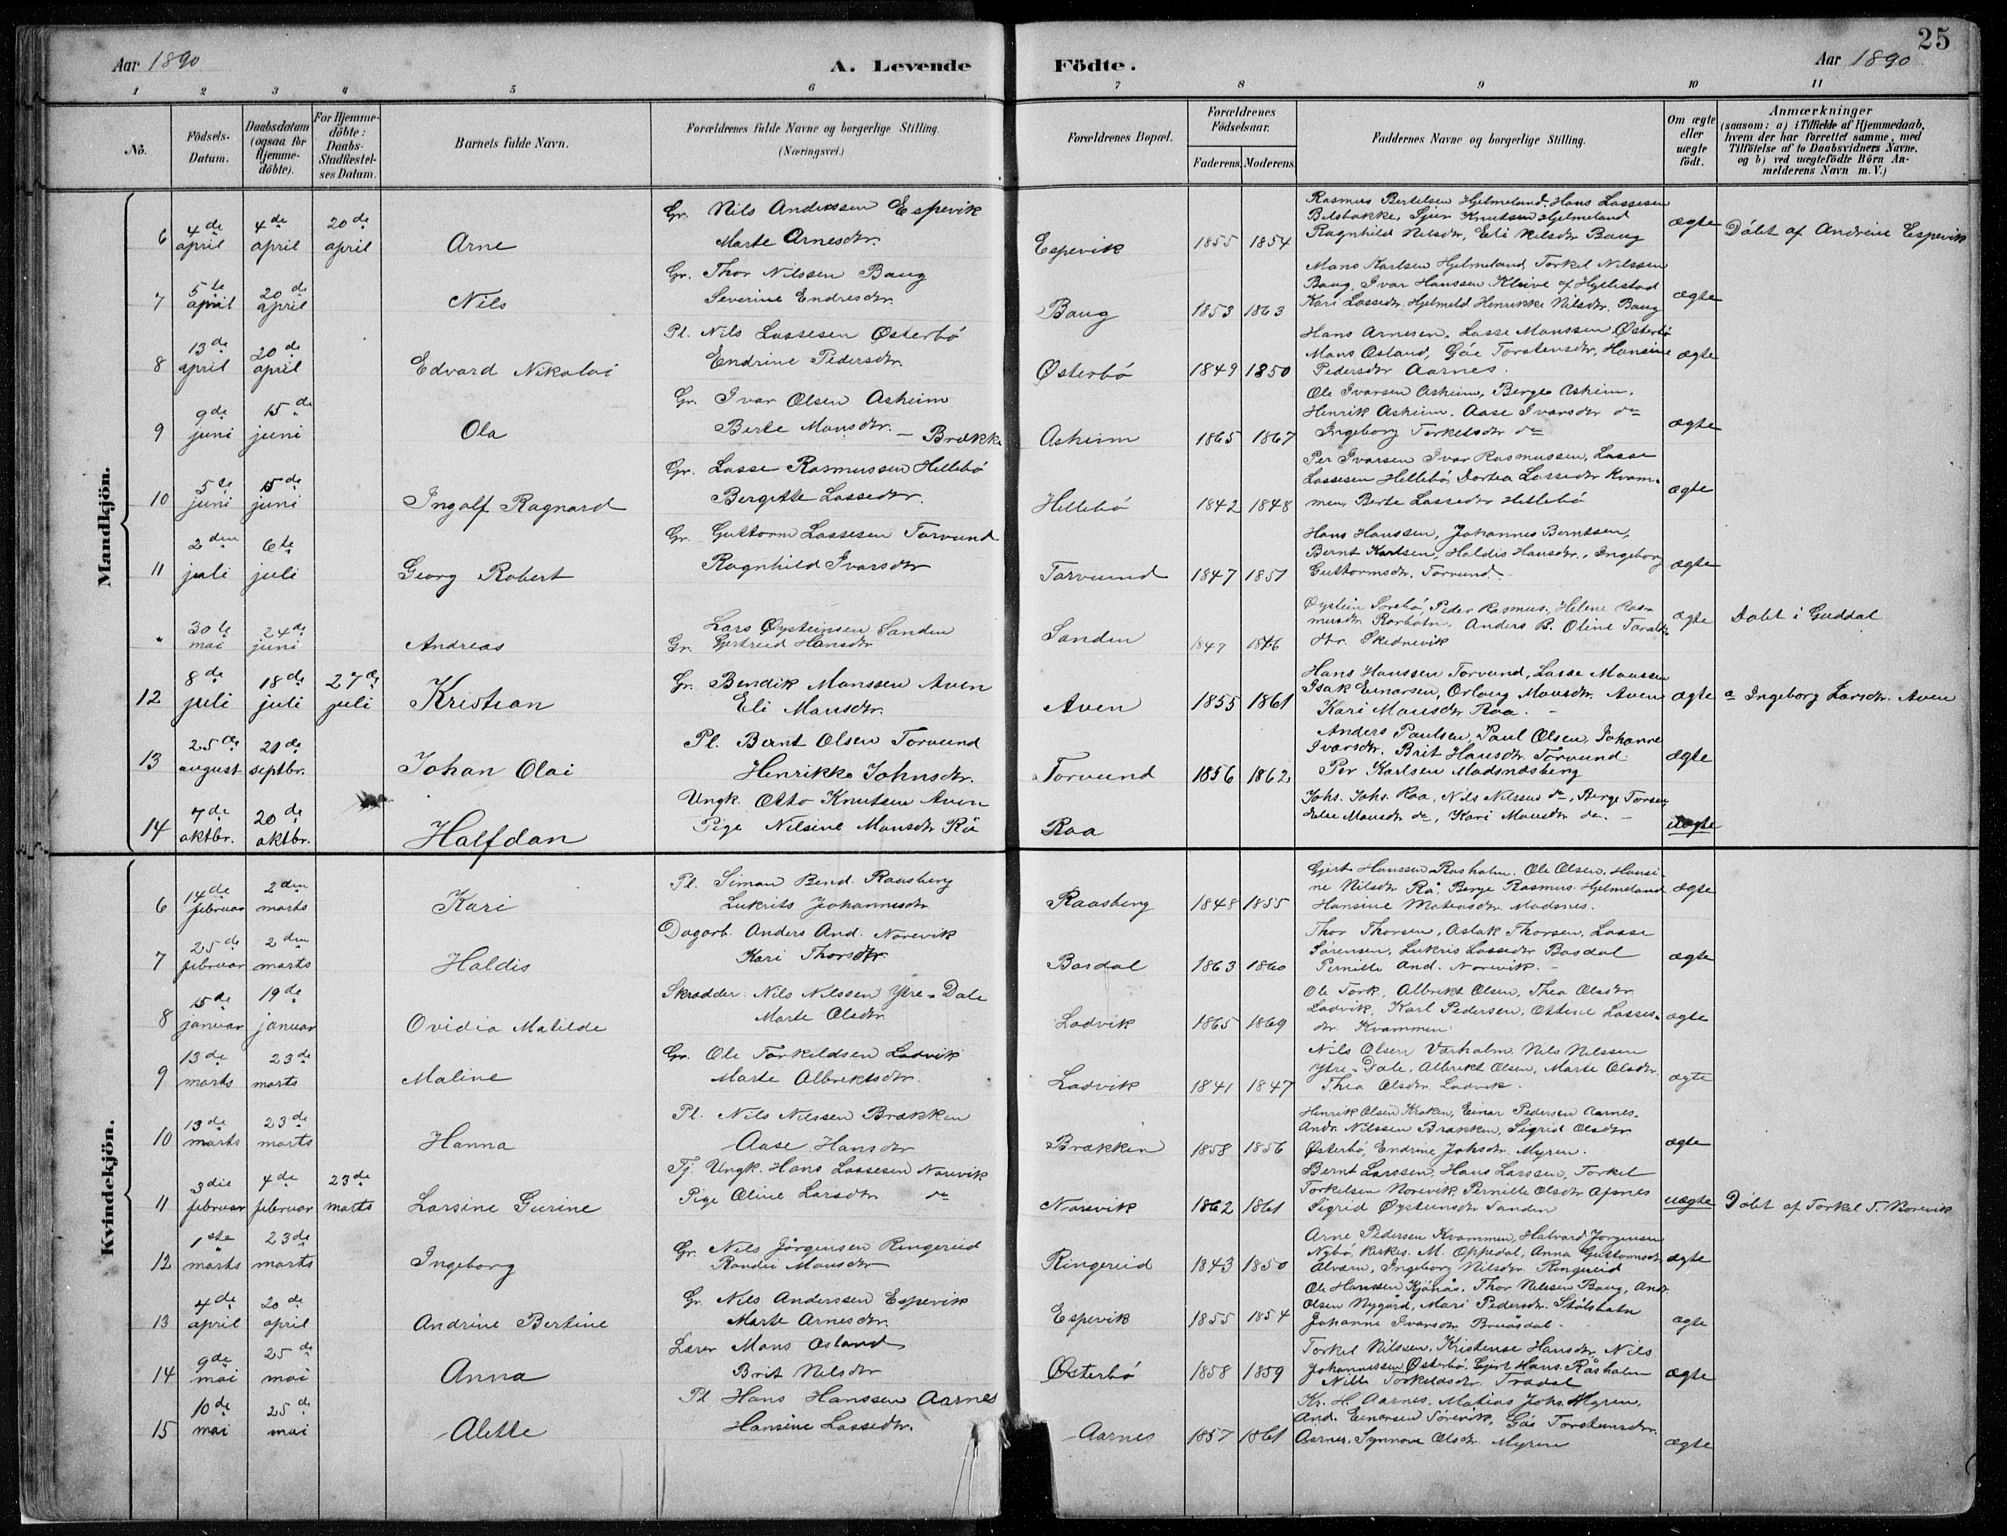 25
Aar 1890
A. Levende Födte.
Aar 1890
1 2 3 4 5 6 7 8 9 10 11
No.
Födsels-Datum.
Daabsdatum (ogsaa for Hjemme-döbte).
For Hjemme-döbte: Daabs-Stadfæstel-ses Datum.
Barnets fulde Navn.
Forældrenes fulde Navne og borgerlige Stilling.
(Næringsvei.)
Forældrenes Bopæl.
Forældrenes Födselsaar.
Faderens. Moderens.
Faddernes Navne og borgerlige Stilling.
Om ægte eller uægte födt.
Anmærkninger
(saasom: a) i Tilfælde af Hjemmedaab,
hvem der har forrettet samme, med
Tilföielse af to Daabsvidners Navne.
og b) ved uægtefödte Börn An-
melderens Navn m. V.)
Mandkjön.
6 4de april 4de april 20de april Arne
Gr. Nils Anderssen Espevik
Marte Arnesdtr.
Espevik 1855 1854
Rasmus Bertelsen Hjelmeland, Hans Lassesen
Bilsbakke, Sjur Knutsen Hjelmeland
Ragnhild Nilsdtr, Eli Nilsdtr Baug
ægte Döbt af Andrine Espevik
7 5te april 20de april Nils
Gr. Thor Nilssen Baug
Severine Endresdtr.
Baug 1853 1863
Mons Karlsen Hjelmeland, Torkel Nilssen
Baug, Ivar Hanssen Kleive af Hyllestad
Kari Lassedtr. Hjelmeld Henrikke Nilsdtr. Baug
ægte
8 13de april 20de april Edvard Nikolai
Pl. Nils Lassesen Østerbö
Endrine Pedersdtr.
Østerbö 1849 1850
Hans Arnesen, Lasse Monssen Østerbö
Mons Osland, Göe Torstensdtr, Hansine
Pedersdtr Aarnes.
ægte
9 9de juni 15de juni Ola
Gr. Ivar Olsen Asheim
Berte Monsdtr. – Brække
Asheim 1865 1867
Ole Ivarsen Asheim, Berge Asheim.
Henrik Asheim. Aase Ivarsdtr do
Ingeborg Torkelsdtr do
ægte
10 5te juni 15de juni Ingolf Ragnard
Gr. Lasse Rasmussen Hellebö
Bergitte Lassedtr.
Hellebö 1842 1848
Per Ivarsen Ivar Rasmussen, Lasse
Lassesen Hellebö, Dortea Lassedtr Kvam-
men, Berte Lassedtr Hellebö
ægte
11 2den juli 6te juli Georg Robert
Gr. Guttorm Lassesen Torvund
Ragnhild Ivarsdtr
Torvund 1847 1851
Hans Hanssen, Johannes Berntsen,
Bernt Karlsen, Haldis Hansdtr., Ingeborg
Guttormsdtr. Torvund.
ægte
" 30te mai 24de juni Andreas
Lars Øysteinsen Sanden
Gr. Gjertrud Hansdtr
Sanden 1847 1846
Øystein Sörebö, Peder Rasmus., Helene Ras-
musdtr. Anders B. Oline
dtr. Skednevik
ægte Döbt i Guddal
12 8de juli 18de juli 27de juli Kristian
Gr. Bendik Monssen Aven
Eli Monsdtr.
Aven 1855 1861
Hans Hanssen Torvund, Lasse Monssen
Isak Einarsen, Orlaug Monsdtr. Aven
Kari Monsdtr Raa.
ægte a Ingeborg Larsdtr. Aven
13 25de august 21de septbr. Johan Olai
Pl. Bernt Olsen Torvund
Henrikke Johnsdtr.
Torvund 1856 1862
Anders Paulsen, Paul Olsen, Johanne
Ivarsdtr. Brit Hansdtr. Torvund
Per Karlsen Madsnæsberg
ægte
14 7de oktbr. 20de oktbr. Halfdan
Ungk. Otto Knutsen Aven
Pige Nilsine Monsdtr Rå
Raa
Johs. Johs. Raa, Nils Nilssen do, Berge Torsen
Monsdtr do, Kari Monsdtr do.
uægte
Kvindekjön.
6 14de februar 2den marts Kari
Pl. Simon Bend. Raasberg
Lukrits Johannesdtr
Raasberg 1848 1855
Gjert Hanssen Raasholm. Ole Olsen, Hansi-
ne Nilsdtr Rå. Berge Rasmus. Hjelmeland
Hansine Mateasdtr. Madsnes.
ægte
7 25de februar 2den marts Haldis
Dagarb. Anders And. Norevik
Kari Thorsdtr.
Basdal 1863 1860
Thor Thorsen, Aslak Thorsen, Lasse
Sörensen, Lukris Lassedtr Basdal
Pernille And. Norevik.
ægte
8 15de januar 19de januar Ovidia Matilde
Skrædder Nils Nilssen Ytre-Dale
Marte Olsdtr
Ladvik 1865 1869
Ole Tork, Albrikt Olsen, Thea Olsdtr.
Ladvik, Karl Pedersen, Ottine Lasses-
dtr. Kvammen
ægte
9 13de marts 23de marts Maline
Gr. Ole Torkildsen Ladvik
Marte Albriktsdtr.
Ladvik 1841 1847
Nils Olsen Værholm, Nils Nilssen
Ytre-Dale, Albrikt Olsen, Marte Olsdtr.
Thea Olsdtr. Ladvik.
ægte
10 13de marts 23de marts Hanna
Pl. Nils Nilssen Brækken
Aase Hansdtr
Brækken 1858 1856
Henrik Olsen Kråken, Einar Pedersen Aarnes.
Andr. Nilssen Brækken, Sigrid Olsdtr
Østerbö, Endrine Johsdtr. Myren.
ægte
11 3die februar 4de februar 23de marts Larsine Gurine
Tj Ungk. Hans Lassesen Norevik
Pige Oline Larsdtr do
Norevik 1862 1861
Bernt Larssen, Hans Larssen, Torkel
Torkelsen Norevik, Pernille Olsdtr
Sigrid Øysteinsdtr Sanden
uægte Döbt af Torkel T. Norevik
12 1ste marts 23de marts Ingeborg
Gr. Nils Jörgensen Ringereid
Randei Monsdtr
Ringereid 1843 1850
Arne Pedersen Kvammen, Halvard Jörgensen
Nybö, Kirkes. M. Oppedal, Anna Guttormsdtr
Alværn, Ingeborg Nilsdtr. Ringereid
ægte
13 4de april 20de april Andrine Bertine
Gr. Nils Anderssen Espevik
Marte Arnesdtr.
Espevik 1855 1854
Ole Hanssen Kjönås, Thor Nilssen Baug, And.
Olsen Nygard, Mari Pedersdtr.
Johanne Ivarsdtr
ægte
14 9de mai 25de mai Anna
Lærer Mons Osland
Brit Nilsdtr
Østerbö 1858 1859
Torkel Nilssen, Kristense Hansdtr, Nils
Johannessen Østerbö. Gjert Hans. Råsholm
Nille Torkildsdtr. Tradal
ægte
15 10de mai 25de mai Alette
Pl Hans Hanssen Aarnes
Hansine Lassedtr.
Aarnes 1857 1861
Kr. H. Aarnes, Matias Johs. Myren,
And. Einarsen Sörevik, Göe Torstensdtr.
Aarnes, Synnove Olsdtr Myren
ægte